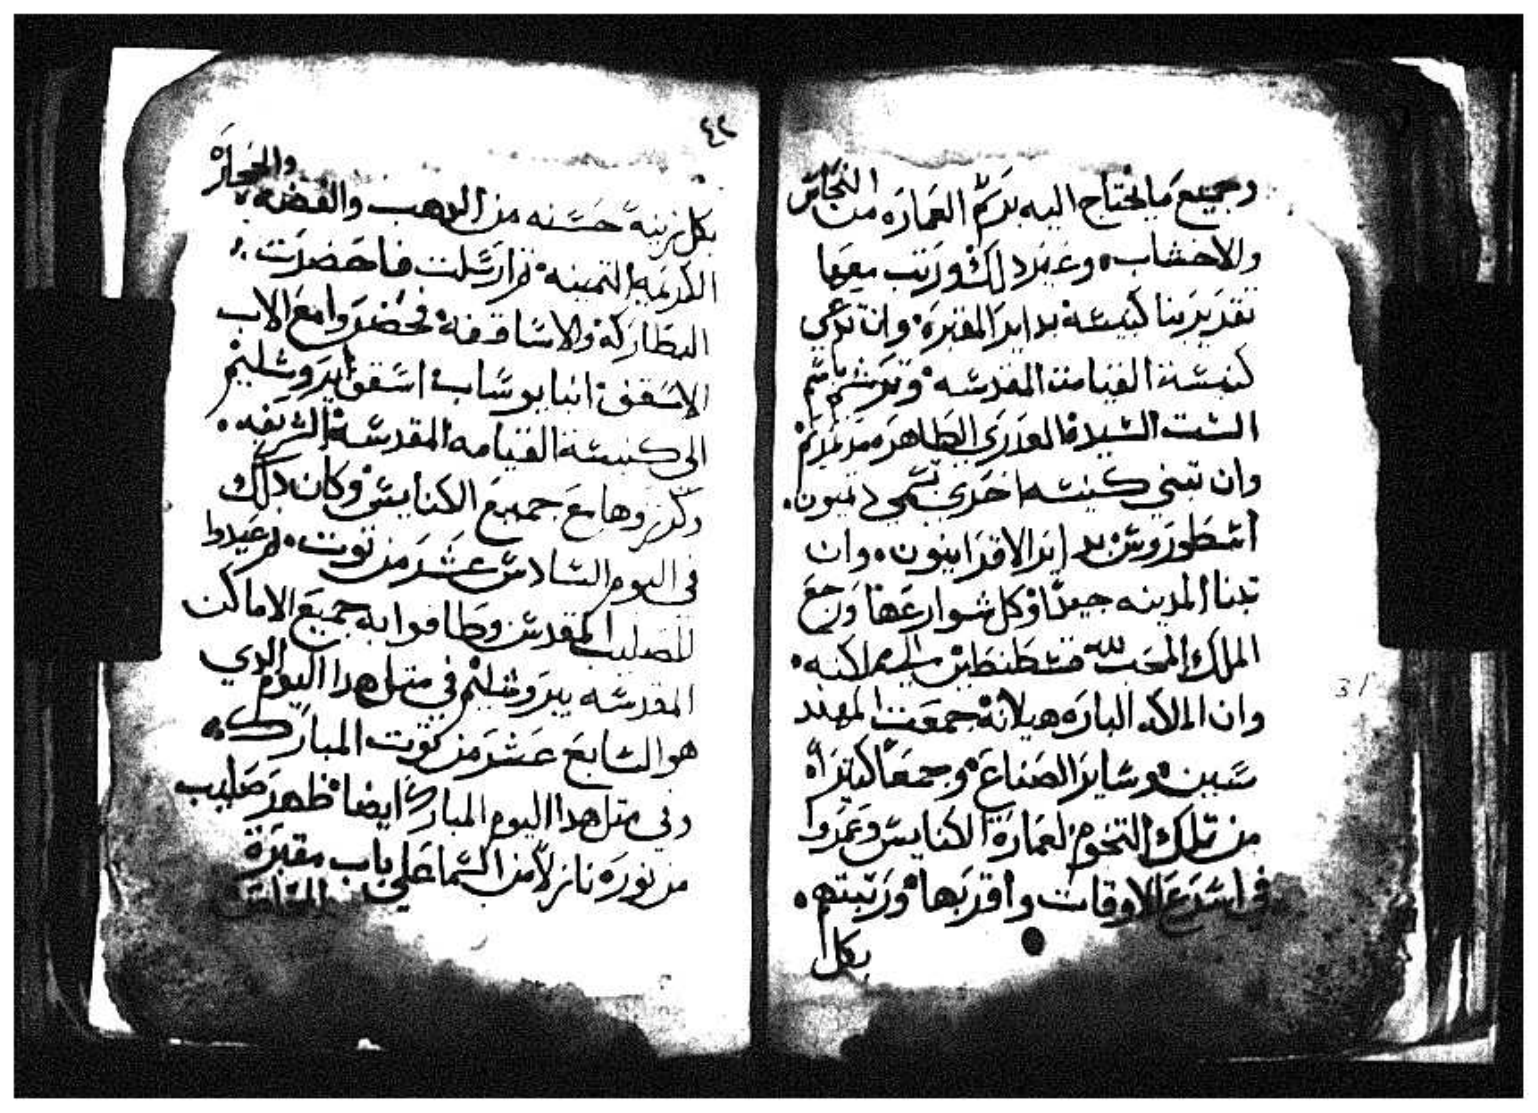 وجميع ما يحتاج اليه برسم العماره من النحاس
والاخشاب وغير ذلك ورتب معها
تقدير بنا كنيسة بداير المقبره وان تدعي
كنيسة القيامه المقدسه وتكرس باسم
الست السيدة العدري الطاهره مرتمريم
وان تبني كنيسه اخري تسمي دنميون
اسطوروس بداير الاقرانيون وان
تبنا المدينه جيدًا وكل شوارعها ورجع
الملك المحب لله قسطنطين الي مراكبه
وان الملكه الباره هيلانة جمعت المهند
سين وساير الصناع وجمعًا كتيرًا
من تلك التخوم لعمارة الكنايس وعمروا
في اسرع الاوقات واقربها ورتبته
بكل
٤٢
بكل زينة حسنه من الدهب والفضه والحجاره
الكريمه التمينه تم ارسلت فاحضرت
البطاركة والاساقفة فحضروا مع الاب
الاسقف انبا يوساب اسقف ايروشليم
الي كنيسة القيامه المقدسة الشريفه
وكرزوها مع جميع الكنايس وكان ذلك
في اليوم السادس عشر من توت تم عيدوا
للصليب المقدس وطافوا به جميع الاماكن
المقدسه بيروشليم في متل هدا اليوم الدي
هو السابع عشر من توت المبارك
وفي متل هدا اليوم المبارك ايضا ظهر صليب
من نوره نازلاً من السما علي باب مقبرة
31